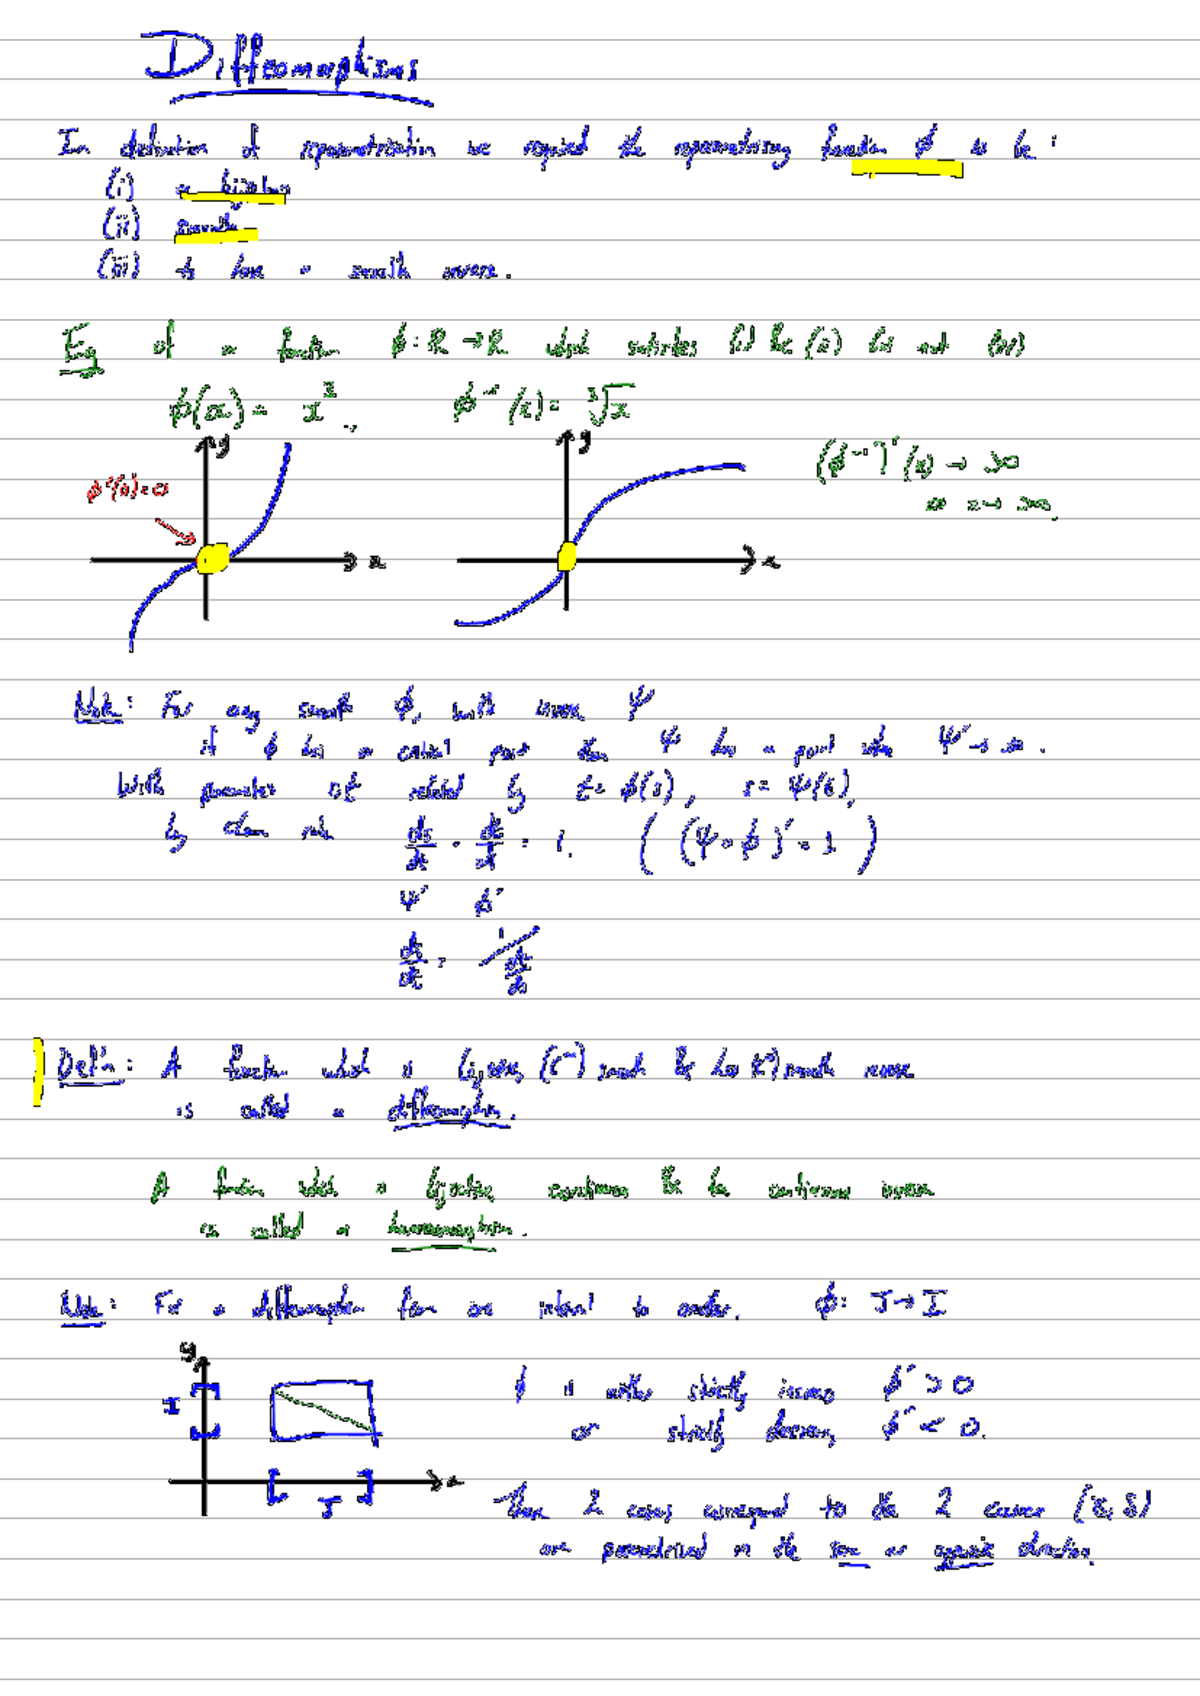 Diffeomorphisms
In definition of reparametrisation we required the reparametrising function ϕ to be:
(i) a bijection
(ii) smooth
(iii) to have a smooth inverse.
Eg of a function ϕ: R → R which satisfies (i) & (ii) but not (iii)
ϕ(x) = x³, ϕ⁻¹(x) = ∛x
y y
(ϕ⁻¹)'(x) → ∞
ϕ'(0)=0
as x →
x x
Note: For any smooth ϕ, with inverse ψ
if ϕ has a critical point then ψ has a point where ψ' → ∞.
With parameters related by t = ϕ(s), s = ψ(t),
by chain rule ds/dt · dt/ds = 1. ((ψ∘ϕ)' = 1)
ψ' ϕ'
ds/dt = 1/dt/ds
Def'n: A function which is bijective, smooth & has smooth inverse
is called a diffeomorphism.
A function which is bijective continuous & has continuous inverse
is called a homeomorphism.
Note: For a diffeomorphism from one interval to another. ϕ: J → I
y
I
ϕ is either strictly increasing ϕ' > 0
or strictly decreasing ϕ' < 0.
J x
These 2 cases correspond to the 2 curves (γ, δ)
are parametrised in the same or opposite direction.